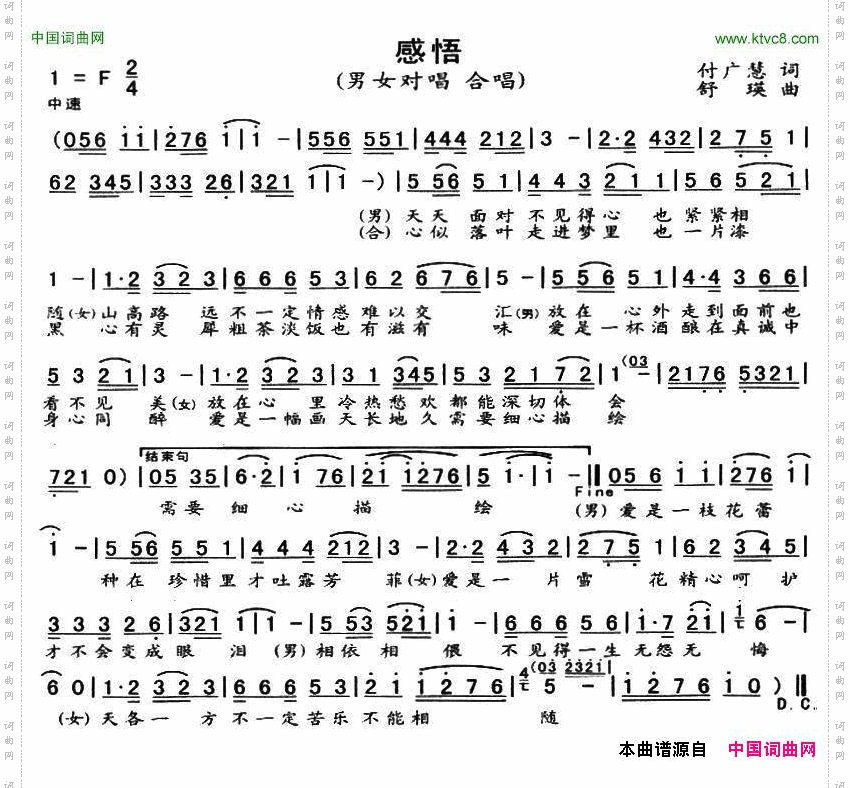 中国词曲网
www.ktvc8.com
感悟
(男女对唱 合唱)
1 = F 2/4
中速
付广慧 词
舒 瑛 曲
(056 1 1|276 1|1 -|556 551|444 212|3 -|2·2 432|2 7 5 1|
62 345|333 26|321 1|1 -)|5 56 5 1|4 4 3 2 1|5 6 5 2 1|
(男)天天 面对 不见得心 也 紧紧相
(合)心似 落叶 走进梦里 也 一片漆
1 -|1·2 3 2 3|6 6 6 5 3|6 2 6 7 6|5 -|5 5 6 5 1|4·4 3 6 6|
随(女)山高路 远不一定情感难以交 汇(男)放在 心外走到面前也
黑 心有灵 犀粗茶淡饭也有滋有 味 爱是一杯酒酿在真诚中
5 3 2 1|3 -|1·2 3 2 3|3 1 345|5 3 2 1 7 2|1 (03 -|2176 5321|
看不见 美(女)放在心 里冷热愁欢都能深切体 会
身心同 醉 爱是一幅画天长地久需要细心描 绘
721 0)|05 35|6·2|1 76|21 1276|5 1·|1 -‖05 6 1 1|276 1|
结束句
Fine
需要 细 心 描 绘 (男)爱是一枝花蕾
1 -|5 56 5 5 1|4 4 4 212|3 -|2·2 4 3 2|2 7 5 1|6 2 3 4 5|
种在 珍惜里才吐露芳 菲(女)爱是一 片雪 花精心呵护
3 3 3 2 6|321 1|1 -|5 53 521|6 6 6 5 6|1·7 21|6 -|
才不会变成眼 泪 (男)相依相 偎 不见得一生无怨无 悔
6 0|1·2 3 2 3|6 6 6 5 3|2 1 1 2 7 6|5 (03 2321 -|1 2 7 6 1 0)‖
D.C.
(女)天各一 方不一定苦乐不能相 随
本曲谱源自 中国词曲网